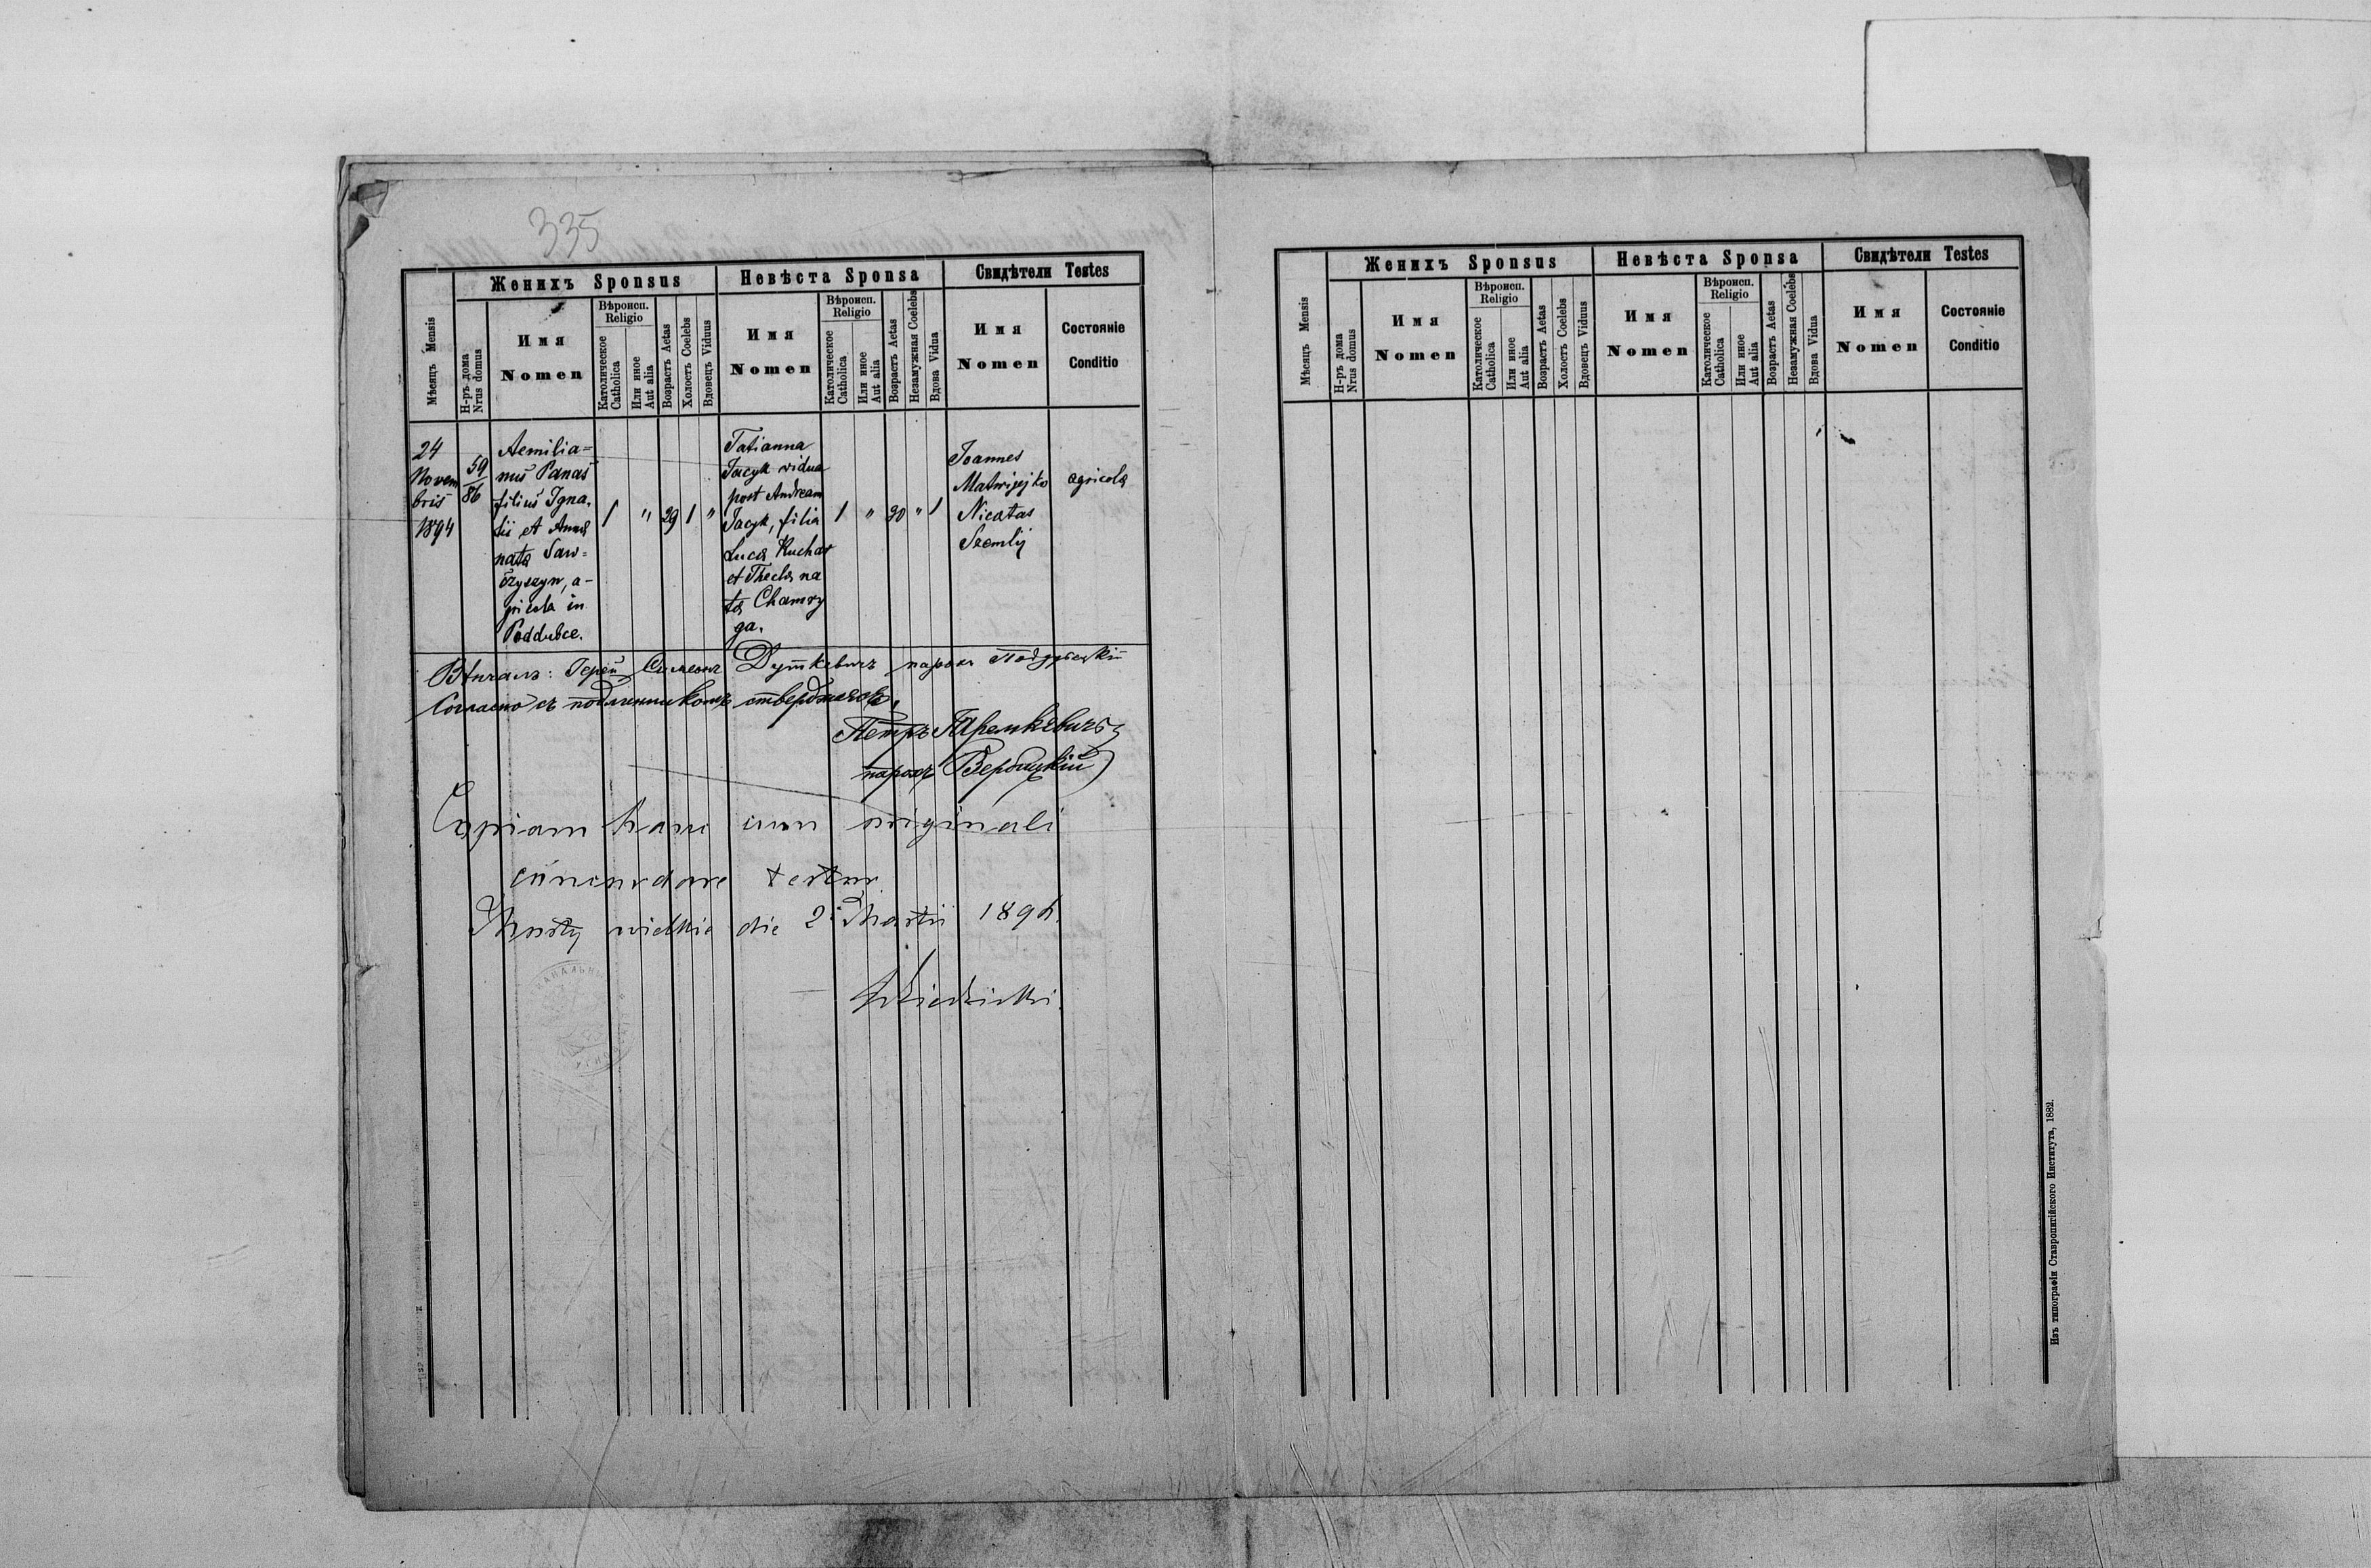 335
Женихъ Sponsus
Невѣста Sponsa
Свидѣтели Testes
Мѣсяцъ Mensis
Н-ръ дома
Nrus domus
Имя
Nomen
Вѣроисп.
Religio
Католическое
Catholica
Или иное
Aut alia
Возрастъ Aetas
Холостъ Coelebs
Вдовецъ Viduus
Имя
Nomen
Вѣроисп.
Religio
Католическое
Catholica
Или иное
Aut alia
Возрастъ Aetas
Незамужная Coelebs
Вдова Vidua
Имя
Nomen
Состояніе
Conditio
24
Novem
bris
1894
59
86
Aemilia=
nus Panas
filius Igna,
tii et Anna
nata Saw=
czyszyn, a-
gricola in
Poddubce.
1
"
29
1
"
Tatianna
Jacyk vidua
post Andream
Jacyk, filia
Luca Kuchar
et Thecla na
ta Chamry
ga.
1
"
30
"
1
Joannes
Matwijejko
Nicetas
Szemlij
agricola
Вѣнчалъ: Іерей Симеонъ Дуткевичъ парохъ Поддубецкій
Согласно съ подлинникомъ
Петръ
парохъ Вербицкій
Copiam hanc cum originali
concordare testor
wielkie die 2 Martii 189
Женихъ Sponsus
Невѣста Sponsa
Свидѣтели Testes
Мѣсяцъ Mensis
Н-ръ дома
Nrus domus
Имя
Nomen
Вѣроисп.
Religio
Католическое
Catholica
Или иное
Aut alia
Возрастъ Aetas
Холостъ Coelebs
Вдовецъ Viduus
Имя
Nomen
Вѣроисп.
Religio
Католическое
Catholica
Или иное
Aut alia
Возрастъ Aetas
Незамужная Coelebs
Вдова Vidua
Имя
Nomen
Состояніе
Conditio
Изъ типографіи Ставропигійского Института, 1882.